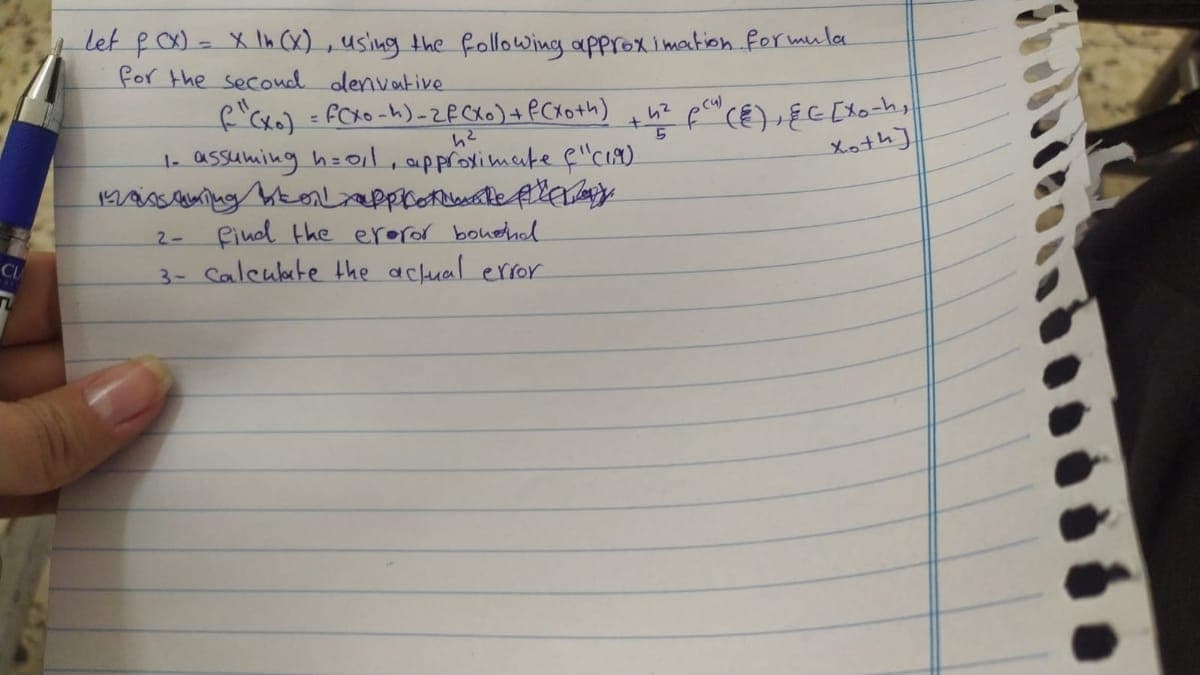 let f(x) = x ln(x), using the following approximation formula
for the second derivative
f''(x0) = f(x0-h)-2f(x0)+f(x0+h) / h² + h²/5 f⁽⁴⁾(ξ), ξ∈[x0-h,
x0+h]
1- assuming h=0,1, approximate f''(1,9)
2- find the eroror bouond
3- Calculate the actual error
CL